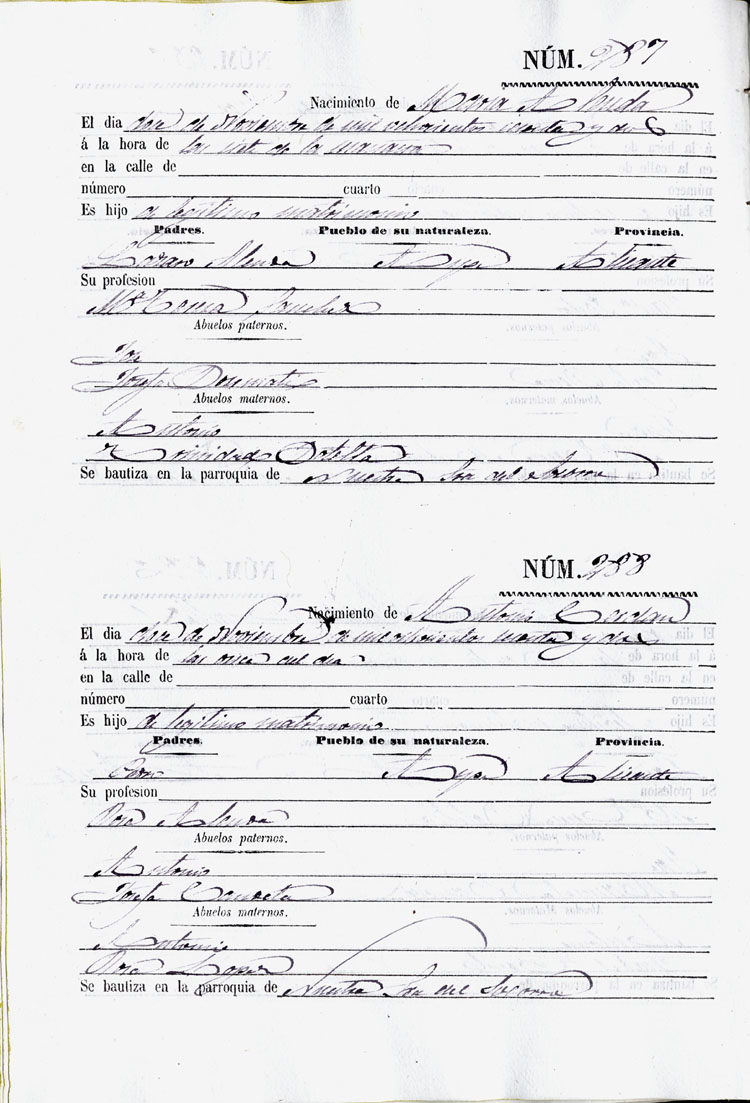 NÚM. 287
Nacimiento de Maria
El dia doce de Noviembre de mil ochocientos y dos
á la hora de las siete de la mañana
en la calle de
número cuarto
Es hijo de legitimo matrimonio
Padres. Pueblo de su naturaleza. Provincia.
Aspe Alicante
Su profesion
Mª Sanchez
Abuelos paternos.
Jose
Josefa
Abuelos maternos.
Antonio
Trinidad Botella
Se bautiza en la parroquia de Nuestra Sra del Socorro
NÚM. 288
Nacimiento de Antonio
El dia doce de Noviembre de mil ochocientos y dos
á la hora de las once del dia
en la calle de
número cuarto
Es hijo de legitimo matrimonio
Padres. Pueblo de su naturaleza. Provincia.
Aspe Alicante
Su profesion
Rosa
Abuelos paternos.
Antonio
Josefa
Abuelos maternos.
Antonio
Rosa Lopez
Se bautiza en la parroquia de Nuestra Sra del Socorro